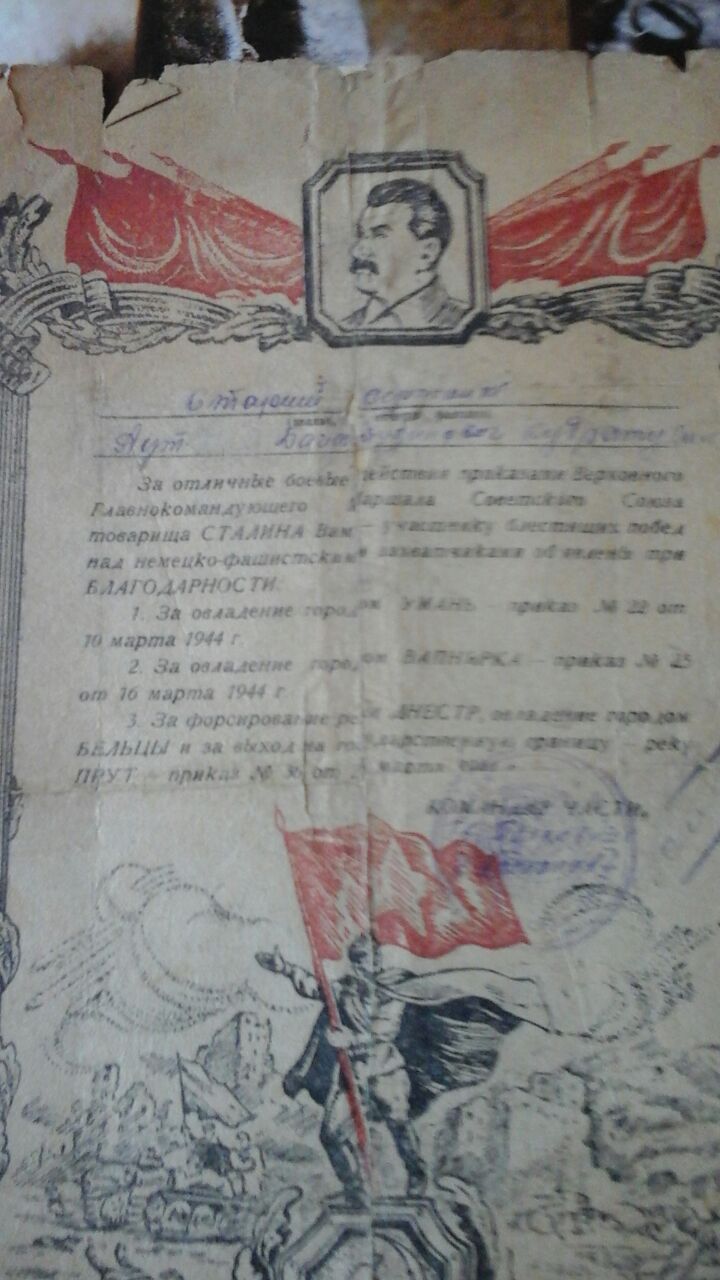 Старший сержант
За отличные боевые действия приказами Верховного
Главнокомандующего Маршала Советского Союза
товарища СТАЛИНА Вам — участнику блестящих побед
над немецко-фашистскими захватчиками объявлены три
БЛАГОДАРНОСТИ:
1. За овладение городом УМАНЬ — приказ № 22 от
10 марта 1944 г.
2. За овладение городом ВАПНЯРКА — приказ № 25
от 16 марта 1944 г.
3. За форсирование реки ДНЕСТР, овладение городом
БЕЛЬЦЫ и за выход на государственную границу — реку
ПРУТ — приказ № от марта
КОМАНДИР ЧАСТИ